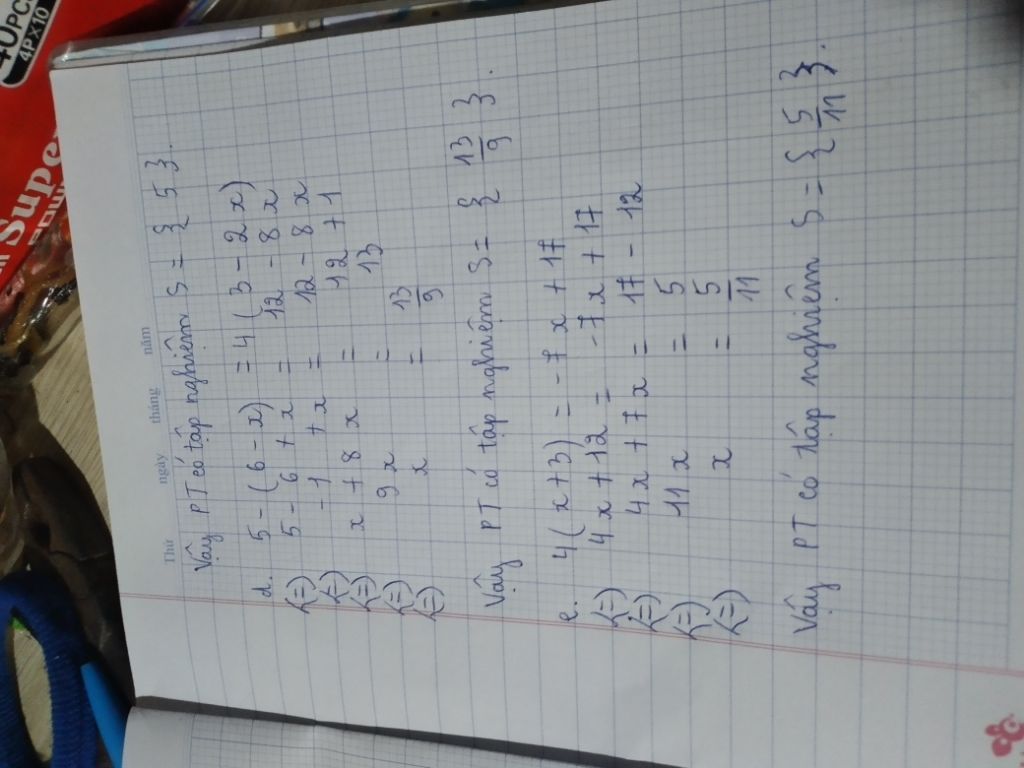 40PCS
4P×10
Super
Thứ ngày tháng năm
Vậy PT có tập nghiệm S = { 5 }.
d. 5 - (6 - x) = 4 (3 - 2x)
(=) 5 - 6 + x = 12 - 8x
(=) -1 + x = 12 - 8x
(=) x + 8x = 12 + 1
(=) 9x = 13
(=) x = 13/9
Vậy PT có tập nghiệm S = { 13/9 }.
e. 4(x+3) = -7x + 17
(=) 4x + 12 = -7x + 17
(=) 4x + 7x = 17 - 12
(=) 11x = 5
(=) x = 5/11
Vậy PT có tập nghiệm S = { 5/11 }.